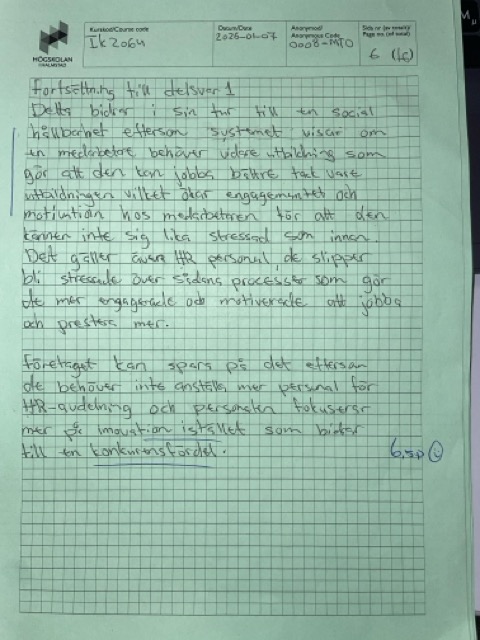 HÖGSKOLAN
I HALMSTAD
Kurskod/Course code
IK2064
Datum/Date
2026-01-07
Anonymkod/
Anonymous Code
0008-MTO
Sida nr (av totalt)/
Page no. (of total)
6 (16)
Fortsättning till delsvar 1
Detta bidrar i sin tur till en social
hållbarhet efterson systemet visar om
en medarbetare behöver vidare utbildning som
gör att den kan jobba bättre tack vare
utbildningen vilket ökar engagemantet och
motivation hos medarbetaren för att den
känner inte sig lika stressad som innan.
Det gäller även HR personal, de slipper
bli stressade över sådana processer som gör
de mer engagerade och motiverade att jobba
och prestera mer.
Företaget kan spara på det efterson
de behöver inte anställa mer personal för
HR-avdelning och personalen fokuserar
mer på inovation istället som bidrar
till en konkurensfördel.
6,5p